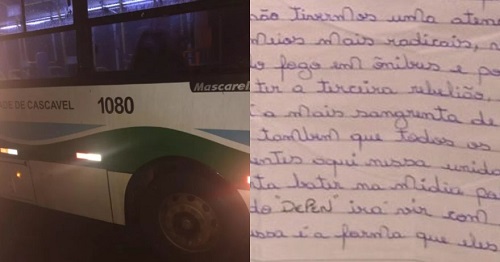 Mascarel
ADE DE CASCAVEL 1080
ão tivermos uma aten
meios mais radicais, a
o fogo em ônibus e po
tir a terceira rebelião,
i a mais sangrenta de
tambem que todos os
entes aqui nessa unid
ta bater na mídia pa
do "DEPEN" irá vir com
ssa é a forma que eles